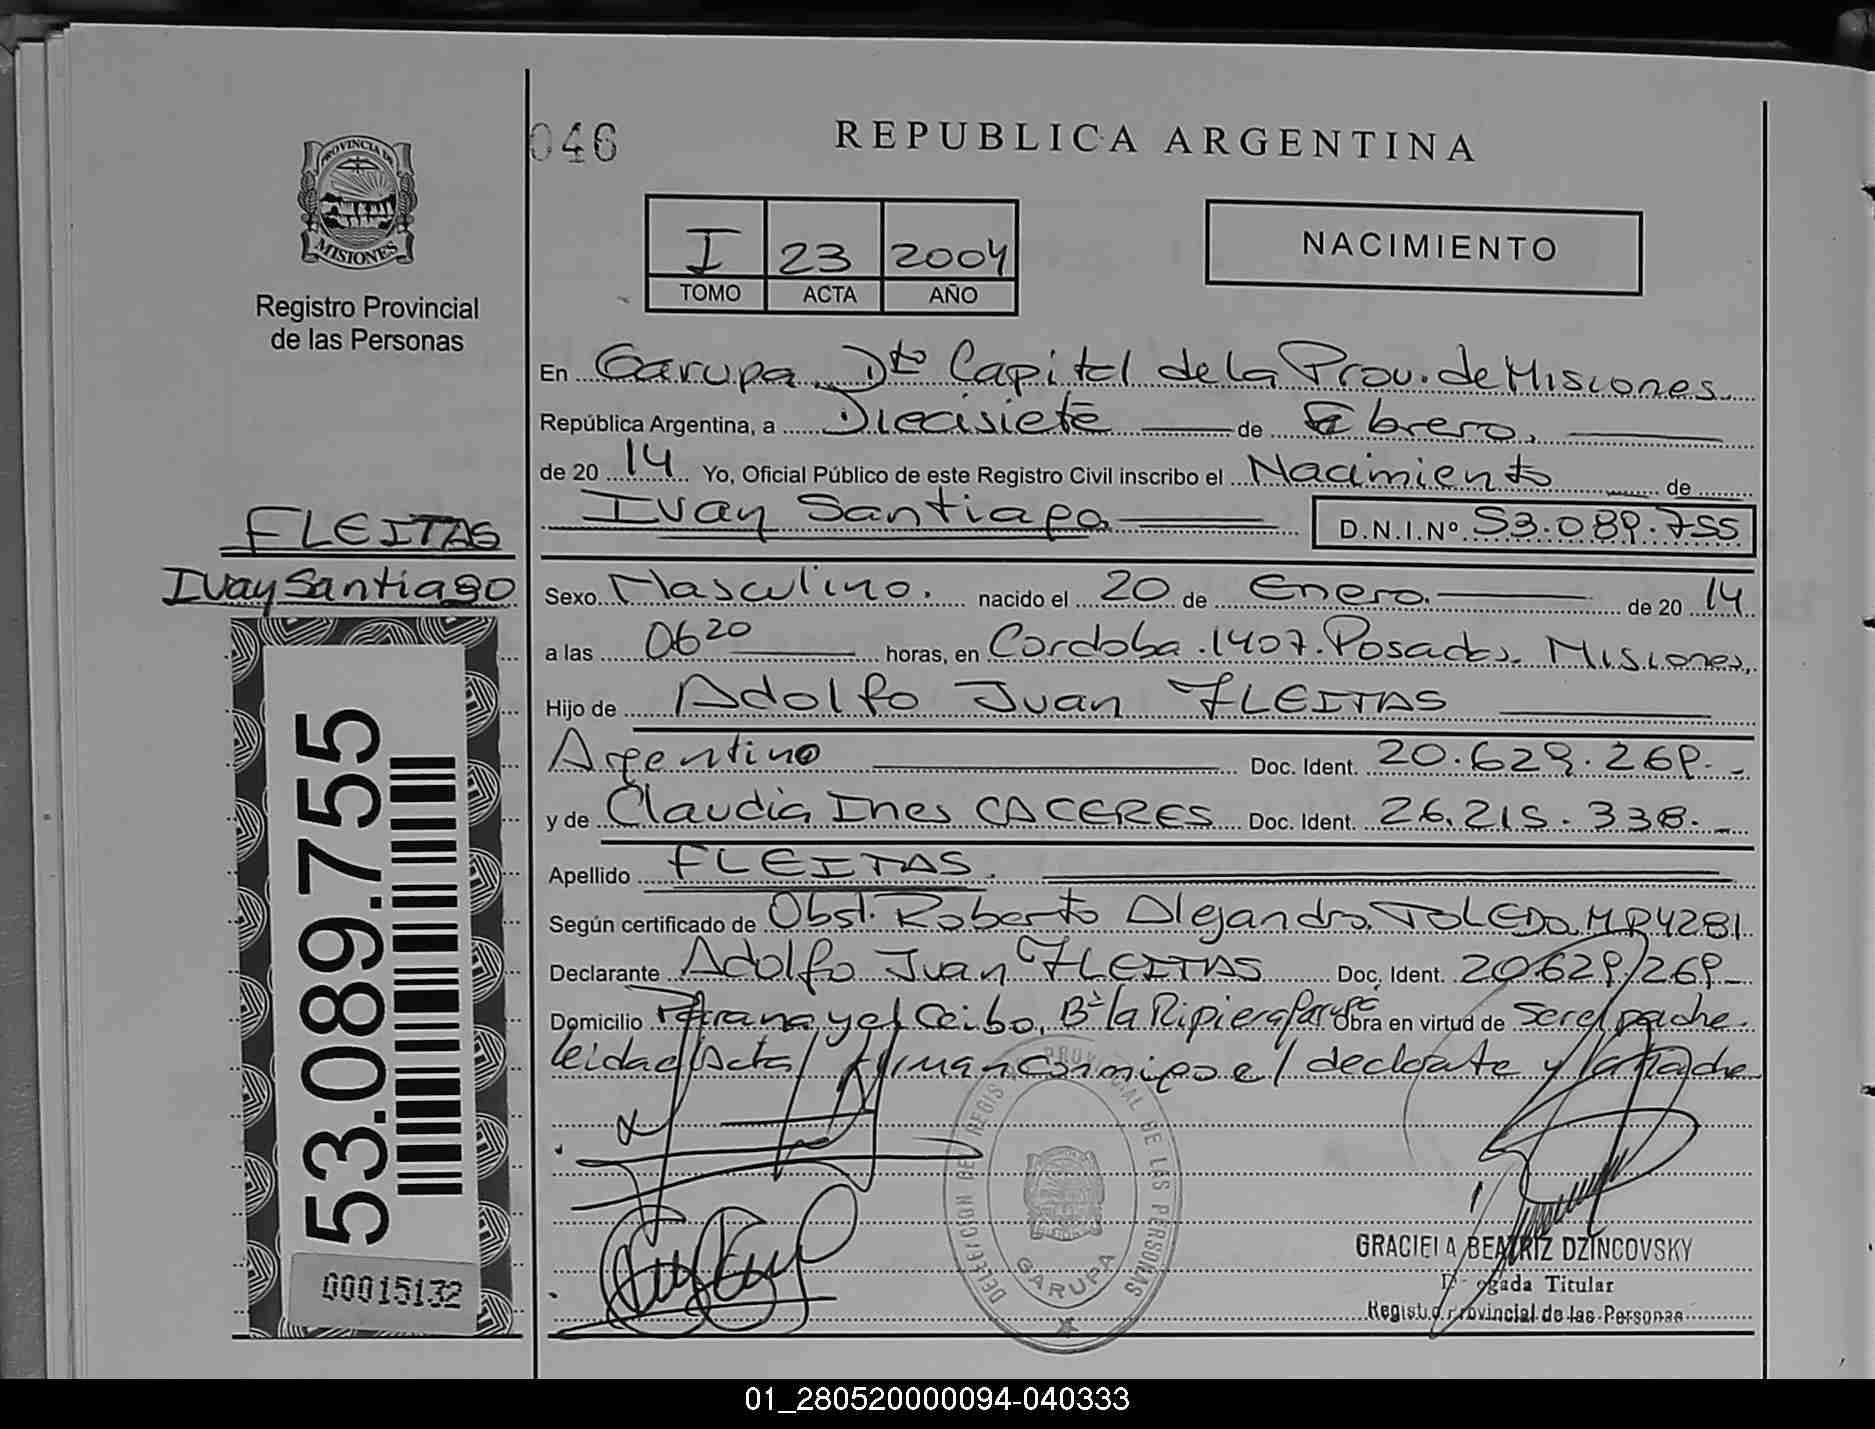 PROVINCIA DE
MISIONES
Registro Provincial
de las Personas
046
REPUBLICA ARGENTINA
I 23 2004
TOMO ACTA AÑO
NACIMIENTO
En Garupa, Dto Capital de la Prov. de Misiones.
República Argentina, a Diecisiete de Febrero,
de 20 14 Yo, Oficial Público de este Registro Civil inscribo el Nacimiento de
Ivay Santiago D.N.I.Nº 53.089.755
FLEITAS
Ivay Santiago
Sexo Masculino. nacido el 20 de Enero. de 20 14
a las 06 20 horas, en Cordoba 1407. Posadas, Misiones,
Hijo de Adolfo Juan FLEITAS
Argentino Doc. Ident. 20.629.269.-
y de Claudia Ines CACERES Doc. Ident. 26.215.338.-
Apellido FLEITAS.
Según certificado de Obst. Roberto Alejandro TOLEDO MP4281
Declarante Adolfo Juan FLEITAS Doc. Ident. 20.629.269.-
Domicilio Parana y el Ceibo, Bº la Ripiera Garupá Obra en virtud de ser el padre.
leida el Acta, firman conmigo el declarante y la madre
53.089.755
00015132
DELEGACION DE REGISTRO PROVINCIAL DE LAS PERSONAS
GARUPA
GRACIELA BEATRIZ DZINCOVSKY
Delegada Titular
Registro Provincial de las Personas
01_280520000094-040333